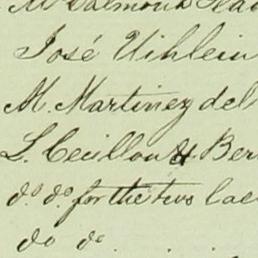 José Uihlein
M. Martinez del
L. Cecillon & Ber
do. do. for the two Cae
do do . . .